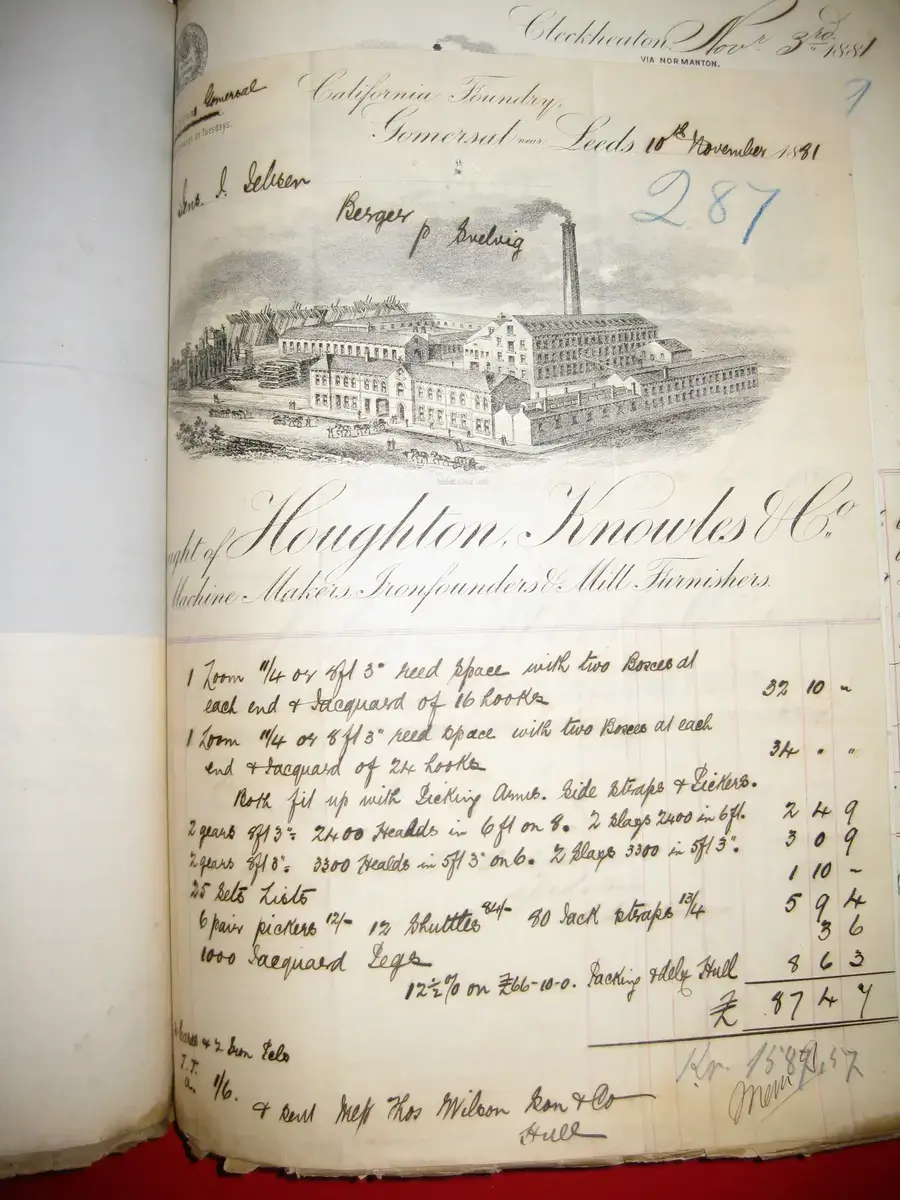 Cleckheaton, Novr 3rd 1881
VIA NORMANTON.
Gomersal
on Tuesdays.
California Foundry,
Gomersal near Leeds 10th November 1881
287
Jens. J. Jebsen
Berger
p Svelvig
ught of Houghton, Knowles & Co.
Machine Makers, Ironfounders & Mill Furnishers.
1 Loom 11/4 or 8ft 3" reed space with two Boxes at
each end & Jacquard of 16 hooks 32 10 -
1 Loom 11/4 or 8ft 3" reed space with two Boxes at each
end & Jacquard of 24 hooks 34 " "
Both fit up with Picking Arms. Side Straps & Pickers.
2 gears 8ft 3" = 2400 Healds in 6ft on 8. 2 Slays 2400 in 6ft. 2 4 9
2 gears 8ft 3" = 3300 Healds in 5ft 3" on 6. 2 Slays 3300 in 5ft 3". 3 0 9
25 Sets Lists 1 10 -
6 pair pickers 12/- 12 Shuttles 84/- 80 Jack straps 13/4 5 9 4
1000 Jacquard Pegs 3 6
12½% on £66-10-0. Packing & dely Hull 8 6 3
£ 87 4 7
& 2 Iron
1/6.
& sent Mess Thos Wilson Son & Co
Hull
Kr. 1587,57